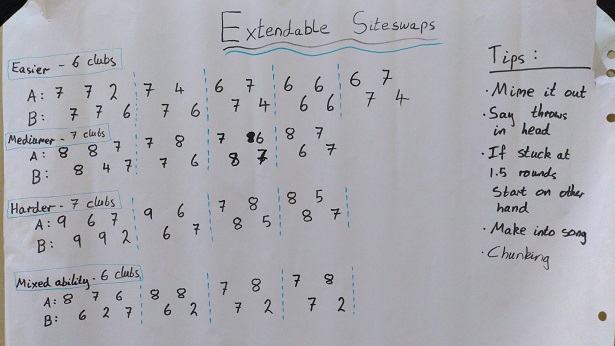 Extendable Siteswaps
Easier - 6 clubs
A: 7 7 2 7 4 6 7 6 6 6 7
B: 7 7 6 7 6 7 4 6 6 7 4
Mediumer - 7 clubs
A: 8 8 7 7 8 7 6 8 7
B: 8 4 7 7 6 8 7 6 7
Harder - 7 clubs
A: 9 6 7 9 6 7 8 8 5
B: 9 9 2 6 7 8 5 8 7
Mixed ability - 6 clubs
A: 8 7 6 8 8 7 8 7 8
B: 6 2 7 6 2 7 2 7 2
Tips:
· Mime it out
· Say throws
in head
· If stuck at
1.5 rounds
Start on other
hand
· Make into song
· Chunking